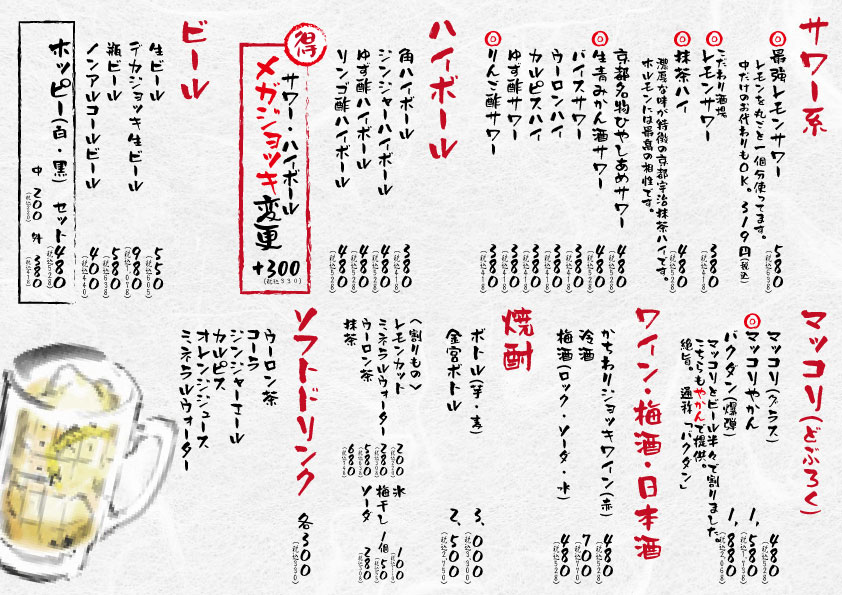 サワー系
◎最強レモンサワー 580
レモンを丸ごと一個分使ってます。
中だけのお代わりもOK。319円(税込)
こだわり酒場
◎レモンサワー 380 (税込418)
◎抹茶ハイ 480 (税込528)
濃厚な味が特徴の京都宇治抹茶ハイです。
ホルモンには最高の相性です。
京都名物ひやしあめサワー 480 (税込528)
◎生青みかん酒サワー 480 (税込528)
バイスサワー 380 (税込418)
ウーロンハイ 380 (税込418)
カルピスハイ 380 (税込418)
ゆず酢サワー 380 (税込418)
◎りんご酢サワー 380 (税込418)
ハイボール
角ハイボール 380 (税込418)
ジンジャーハイボール 480 (税込528)
ゆず酢ハイボール 480 (税込528)
リンゴ酢ハイボール 480 (税込528)
得
サワー・ハイボール
メガジョッキ変更
+300
(税込330)
ビール
生ビール 550 (税込605)
デカジョッキ生ビール 980 (税込1,078)
瓶ビール 580 (税込638)
ノンアルコールビール 400 (税込440)
ホッピー(白・黒) セット480 (税込528)
中 200 外 380 (税込418)
マッコリ(どぶろく)
マッコリ(グラス) 480 (税込528)
◎マッコリやかん 1,580 (税込1,738)
バクダン(爆弾) 1,880 (税込2,068)
マッコリとビール半々で割りました。
こちらもやかんで提供。
絶旨。 通称「バクダン」
ワイン・梅酒・日本酒
かちわりジョッキワイン(赤) 480 (税込528)
冷酒 700 (税込770)
梅酒(ロック・ソーダ・水) 480 (税込528)
焼酎
ボトル(芋・麦) 3,000 (税込3,300)
金宮ボトル 2,500 (税込2,750)
〈割りもの〉
レモンカット 200
ミネラルウォーター 280
ウーロン茶 580
抹茶 680
氷 100
梅干し1個 50
ソーダ 280
ソフトドリンク 各300 (税込330)
ウーロン茶
コーラ
ジンジャーエール
カルピス
オレンジジュース
ミネラルウォーター